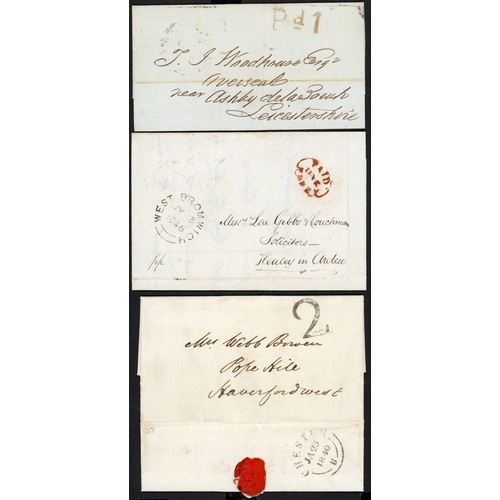 Pd 1
T. J. Woodhouse Esqr
Overseal
near Ashby de la Zouch
Leicestershire
PAID
ONE
WEST BROMWICH
Messrs Lea Gibbs & Couchman
Solicitors
Henley in Arden
pp
2
Mrs Webb Bowen
Pope Hill
Haverfordwest
JA 23
1840
B